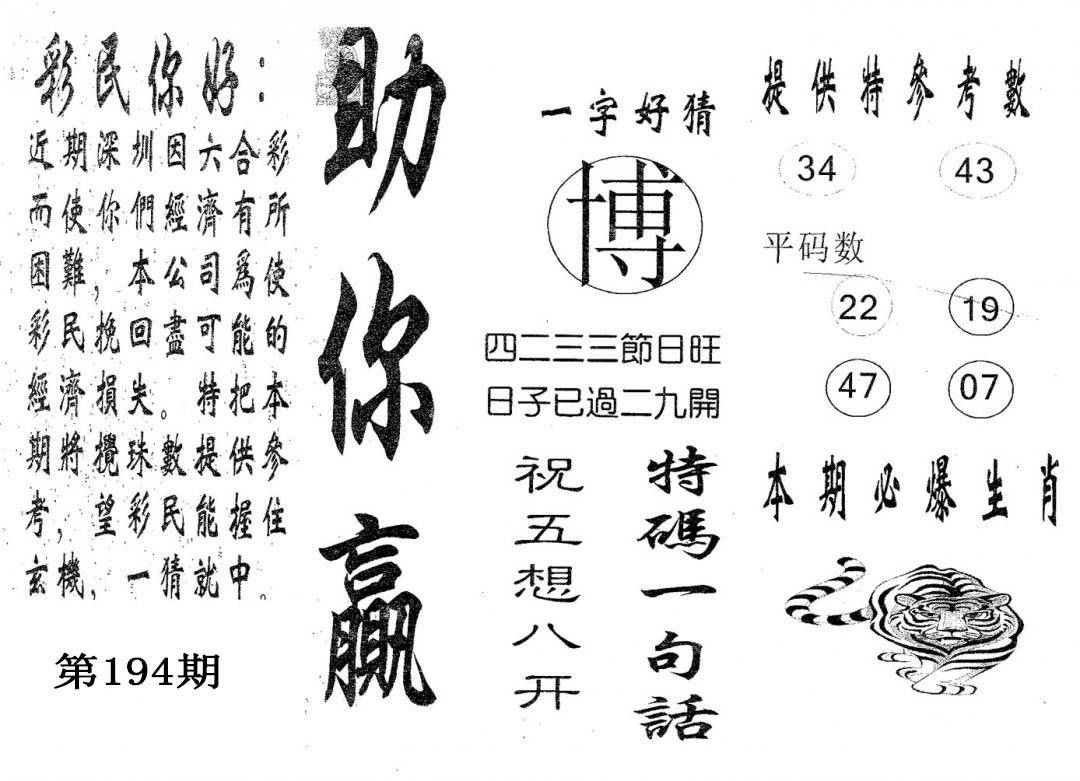 彩民你好：
近期深圳因六合彩
而使你們經濟有所
困難，本公司爲使
彩民挽回盡可能的
經濟損失。特把本
期將攪珠數提供參
考，望彩民能握住
玄機，一猜就中。
第194期
助你贏
一字好猜
博
四二三三節日旺
日子已過二九開
特碼一句話
祝五想八开
提供特參考數
34 43
平码数
22 19
47 07
本期必爆生肖